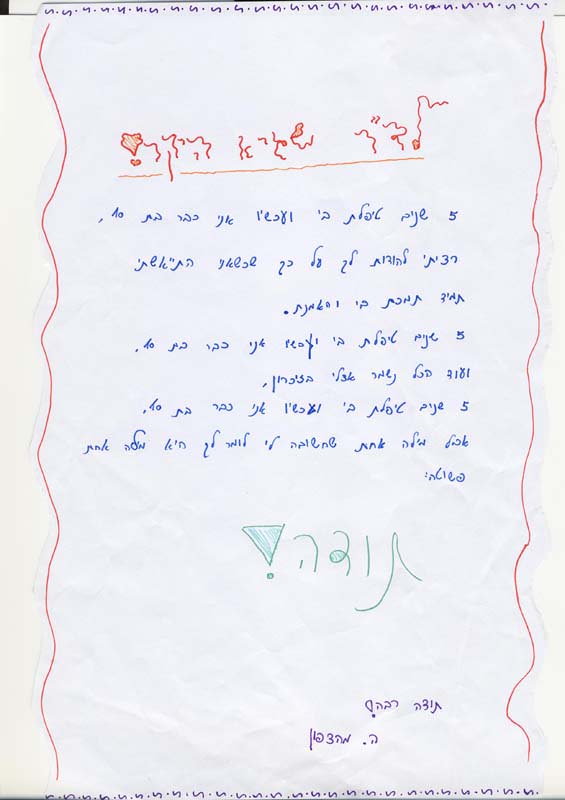 לד"ר שגיא היקר!
5 שנים טיפלת בי ועכשיו אני כבר בת 10,
רציתי להודות לך על כך שכשאני התייאשתי
תמיד תמכת בי והאמנת.
5 שנים טיפלת בי ועכשיו אני כבר בת 10,
ועוד הכל נשמר אצלי בזיכרון,
5 שנים טיפלת בי ועכשיו אני כבר בת 10,
אבל מילה אחת שחשובה לי לומר לך היא מילה אחת
פשוטה:
תודה!
תודה רבה!
ה. מהצפון